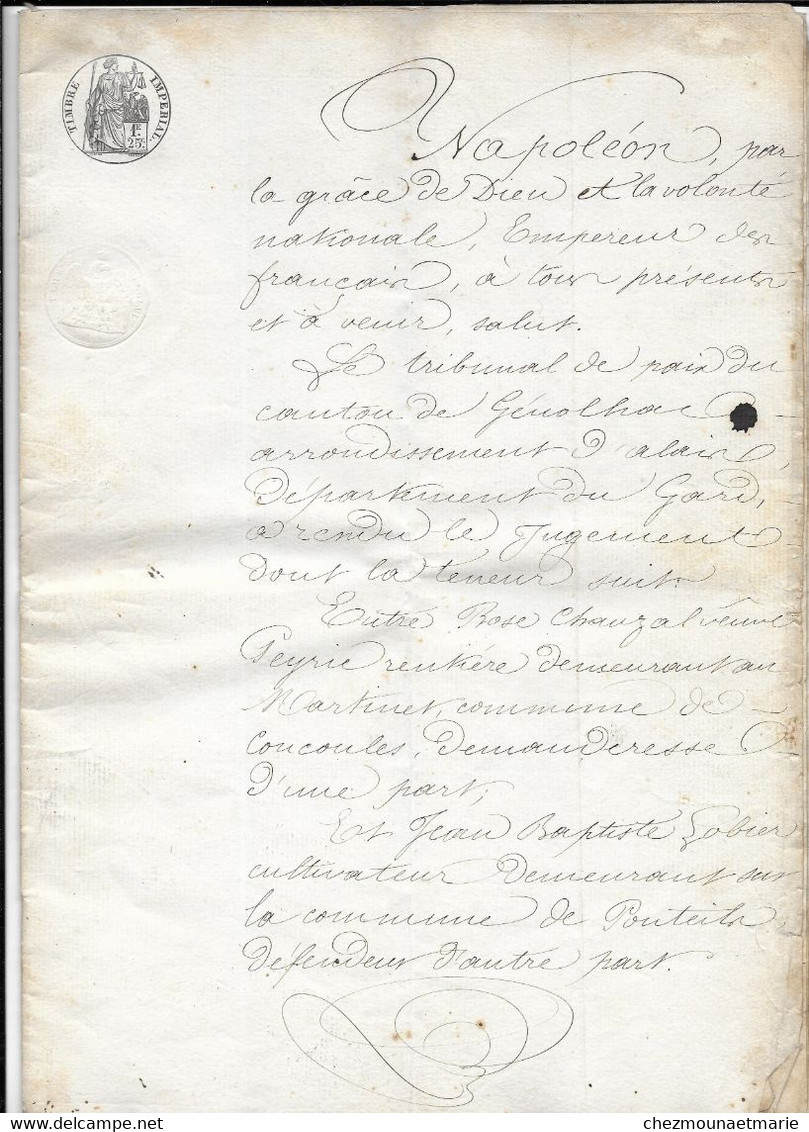 TIMBRE IMPERIAL.
1F
25c
Napoléon, par
la grâce de Dieu et la volonté
nationale, Empereur des
français, à tous présents
et à venir, salut.
Le tribunal de paix du
canton de Génolhac
arrondissement d'alais,
Département du Gard,
a rendu le Jugement
dont la teneur suit.
Entre Rose Chauzal veuve
Peyric rentière demeurant au
Martinet, commune de
Concoules, demanderesse
d'une part,
Et Jean Baptiste
cultivateur demeurant sur
la commune de Ponteils
défendeur d'autre part.
chezmounaetmarie